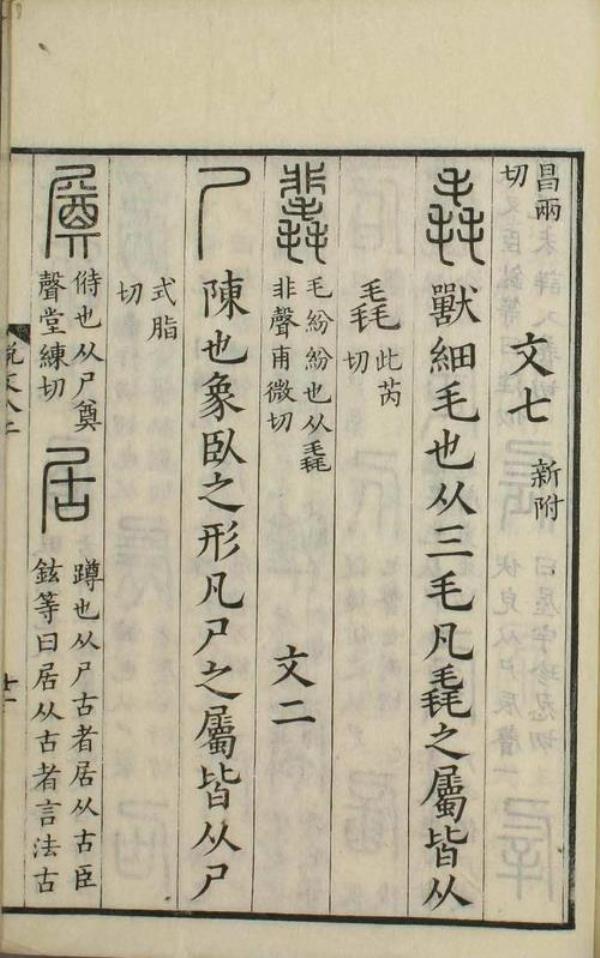 昌兩
切
文七
新附
毳獸細毛也从三毛凡毳之屬皆从
毳
此芮
切
毛紛紛也从毳
非聲甫微切
文二
尸陳也象臥之形凡尸之屬皆从尸
式脂
切
偫也从尸奠
聲堂練切
居
蹲也从尸古者居从古臣
鉉等曰居从古者言法古